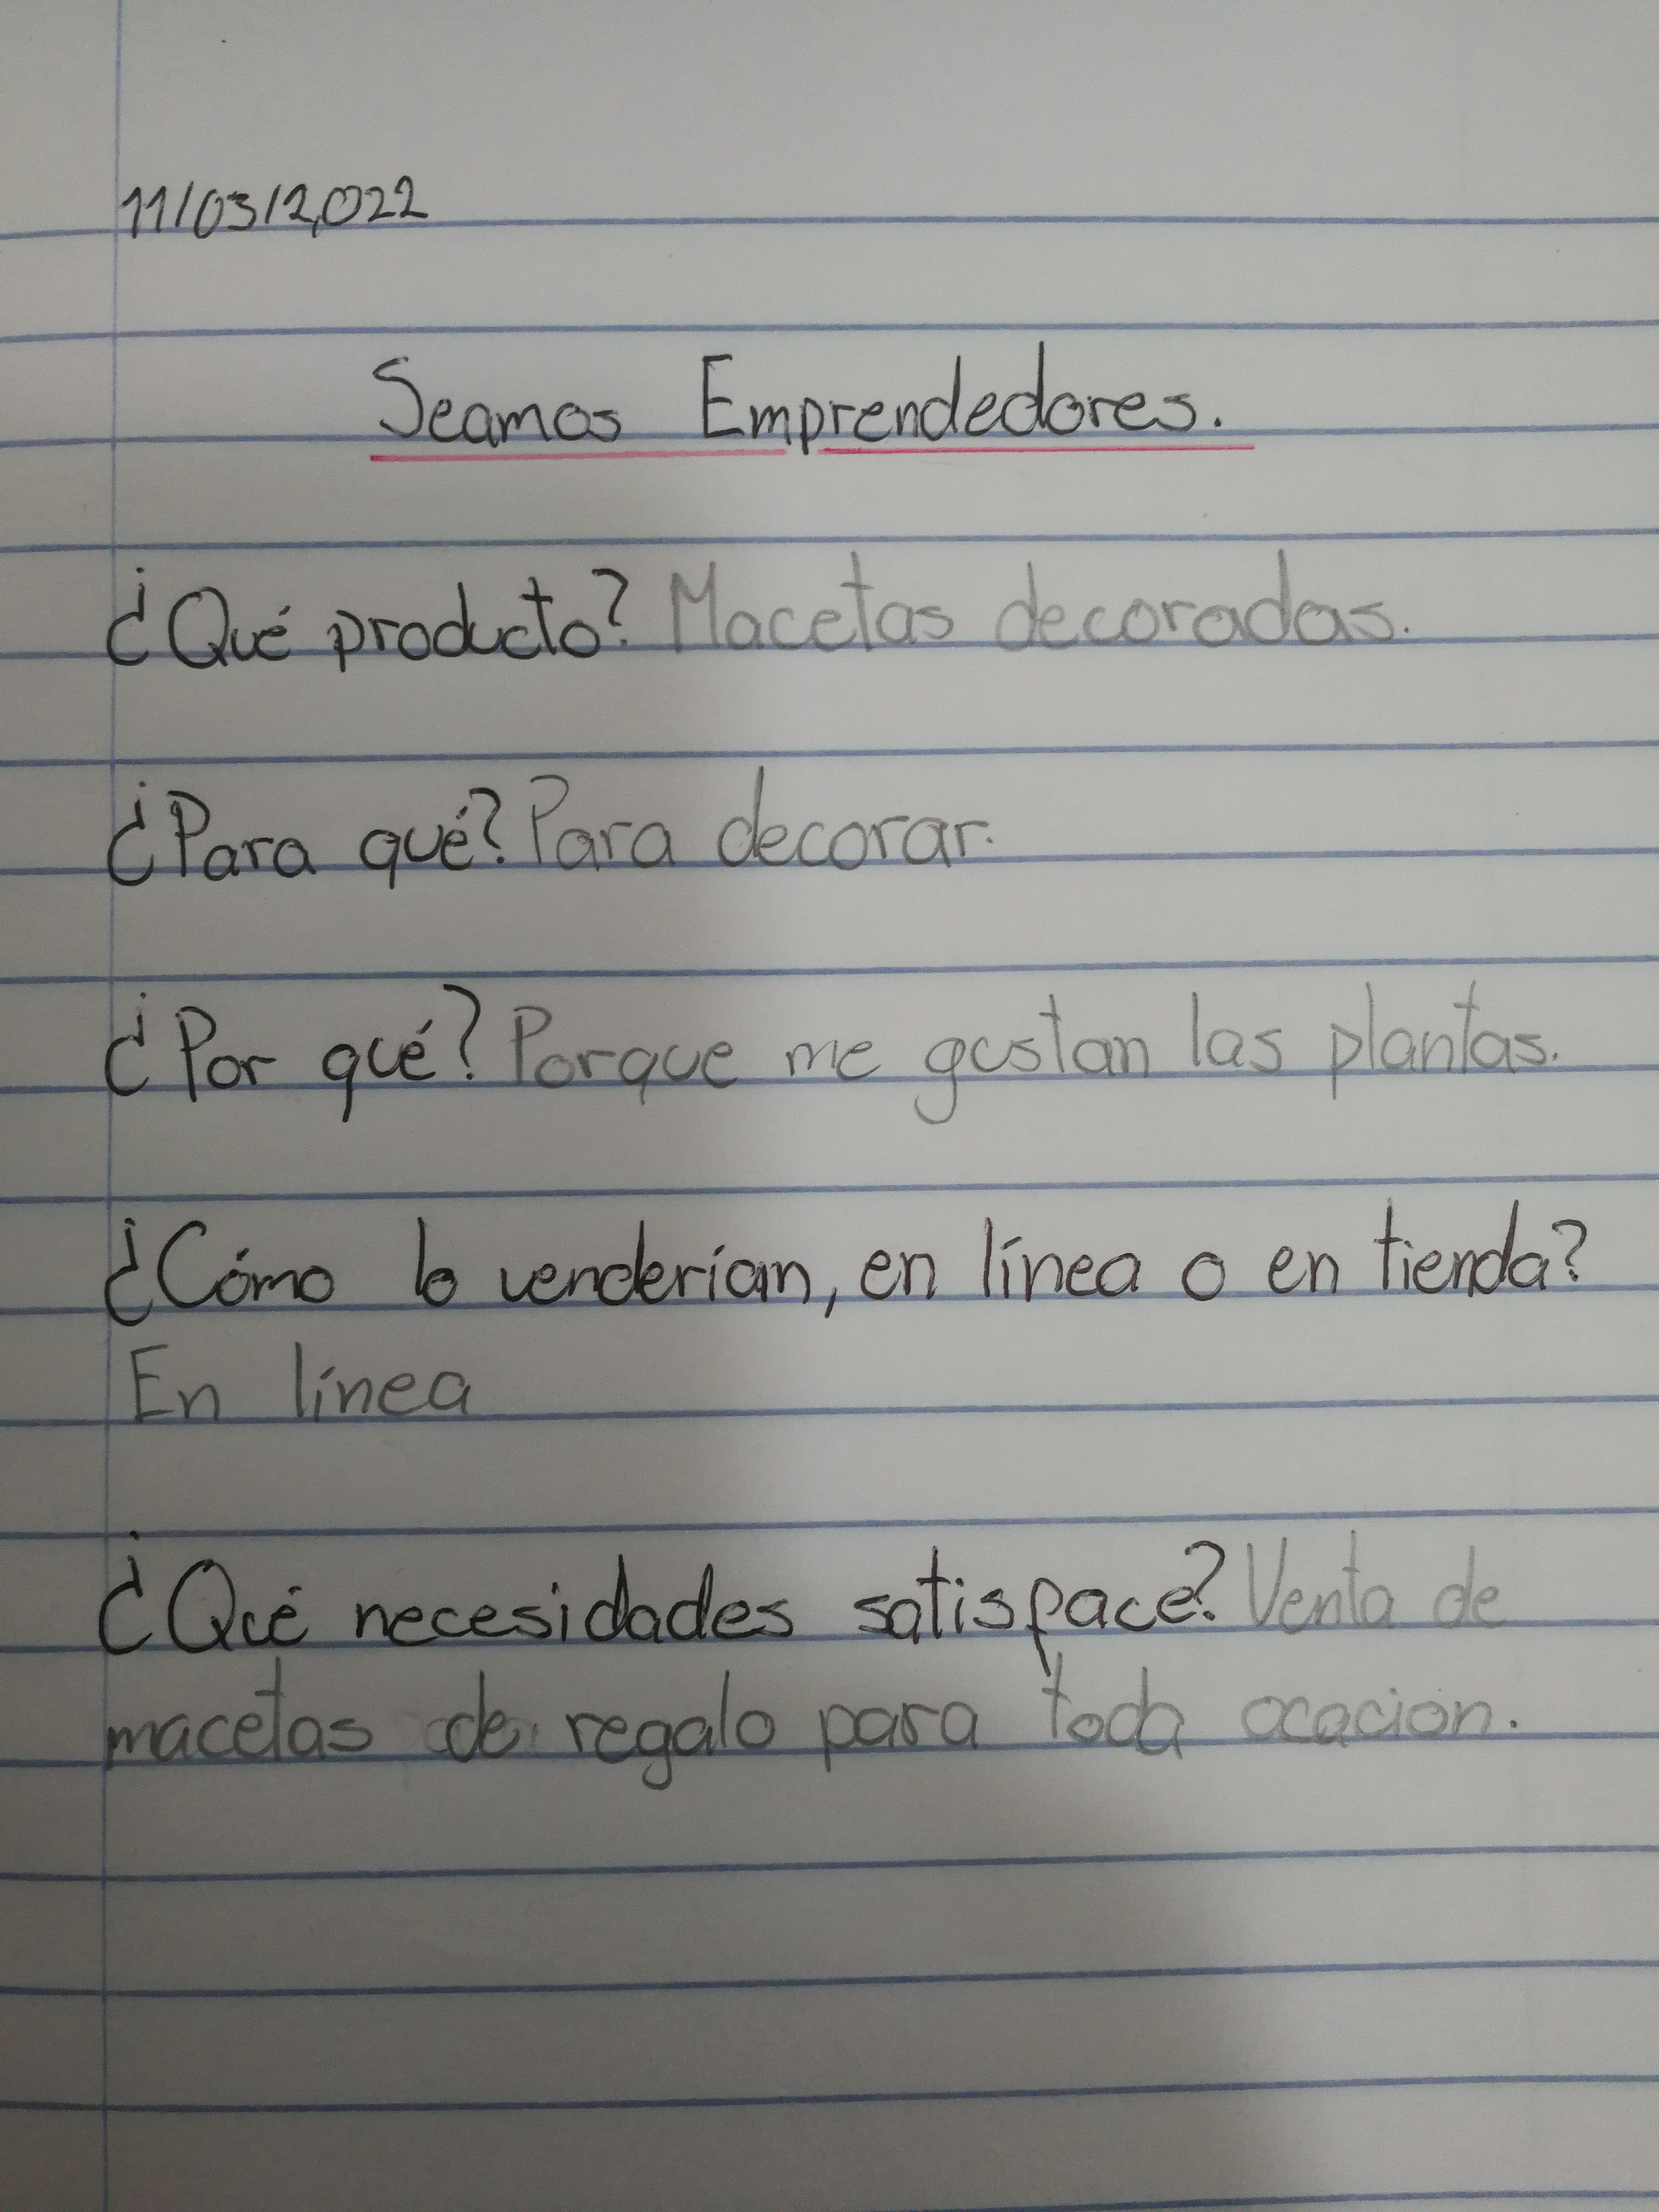 11/03/2,022
Seamos Emprendedores.
¿Qué producto? Macetas decoradas.
¿Para qué? Para decorar.
¿Por qué? Porque me gustan las plantas.
¿Cómo lo venderían, en línea o en tienda?
En línea
¿Qué necesidades satisface? Venta de
macetas de regalo para toda ocación.